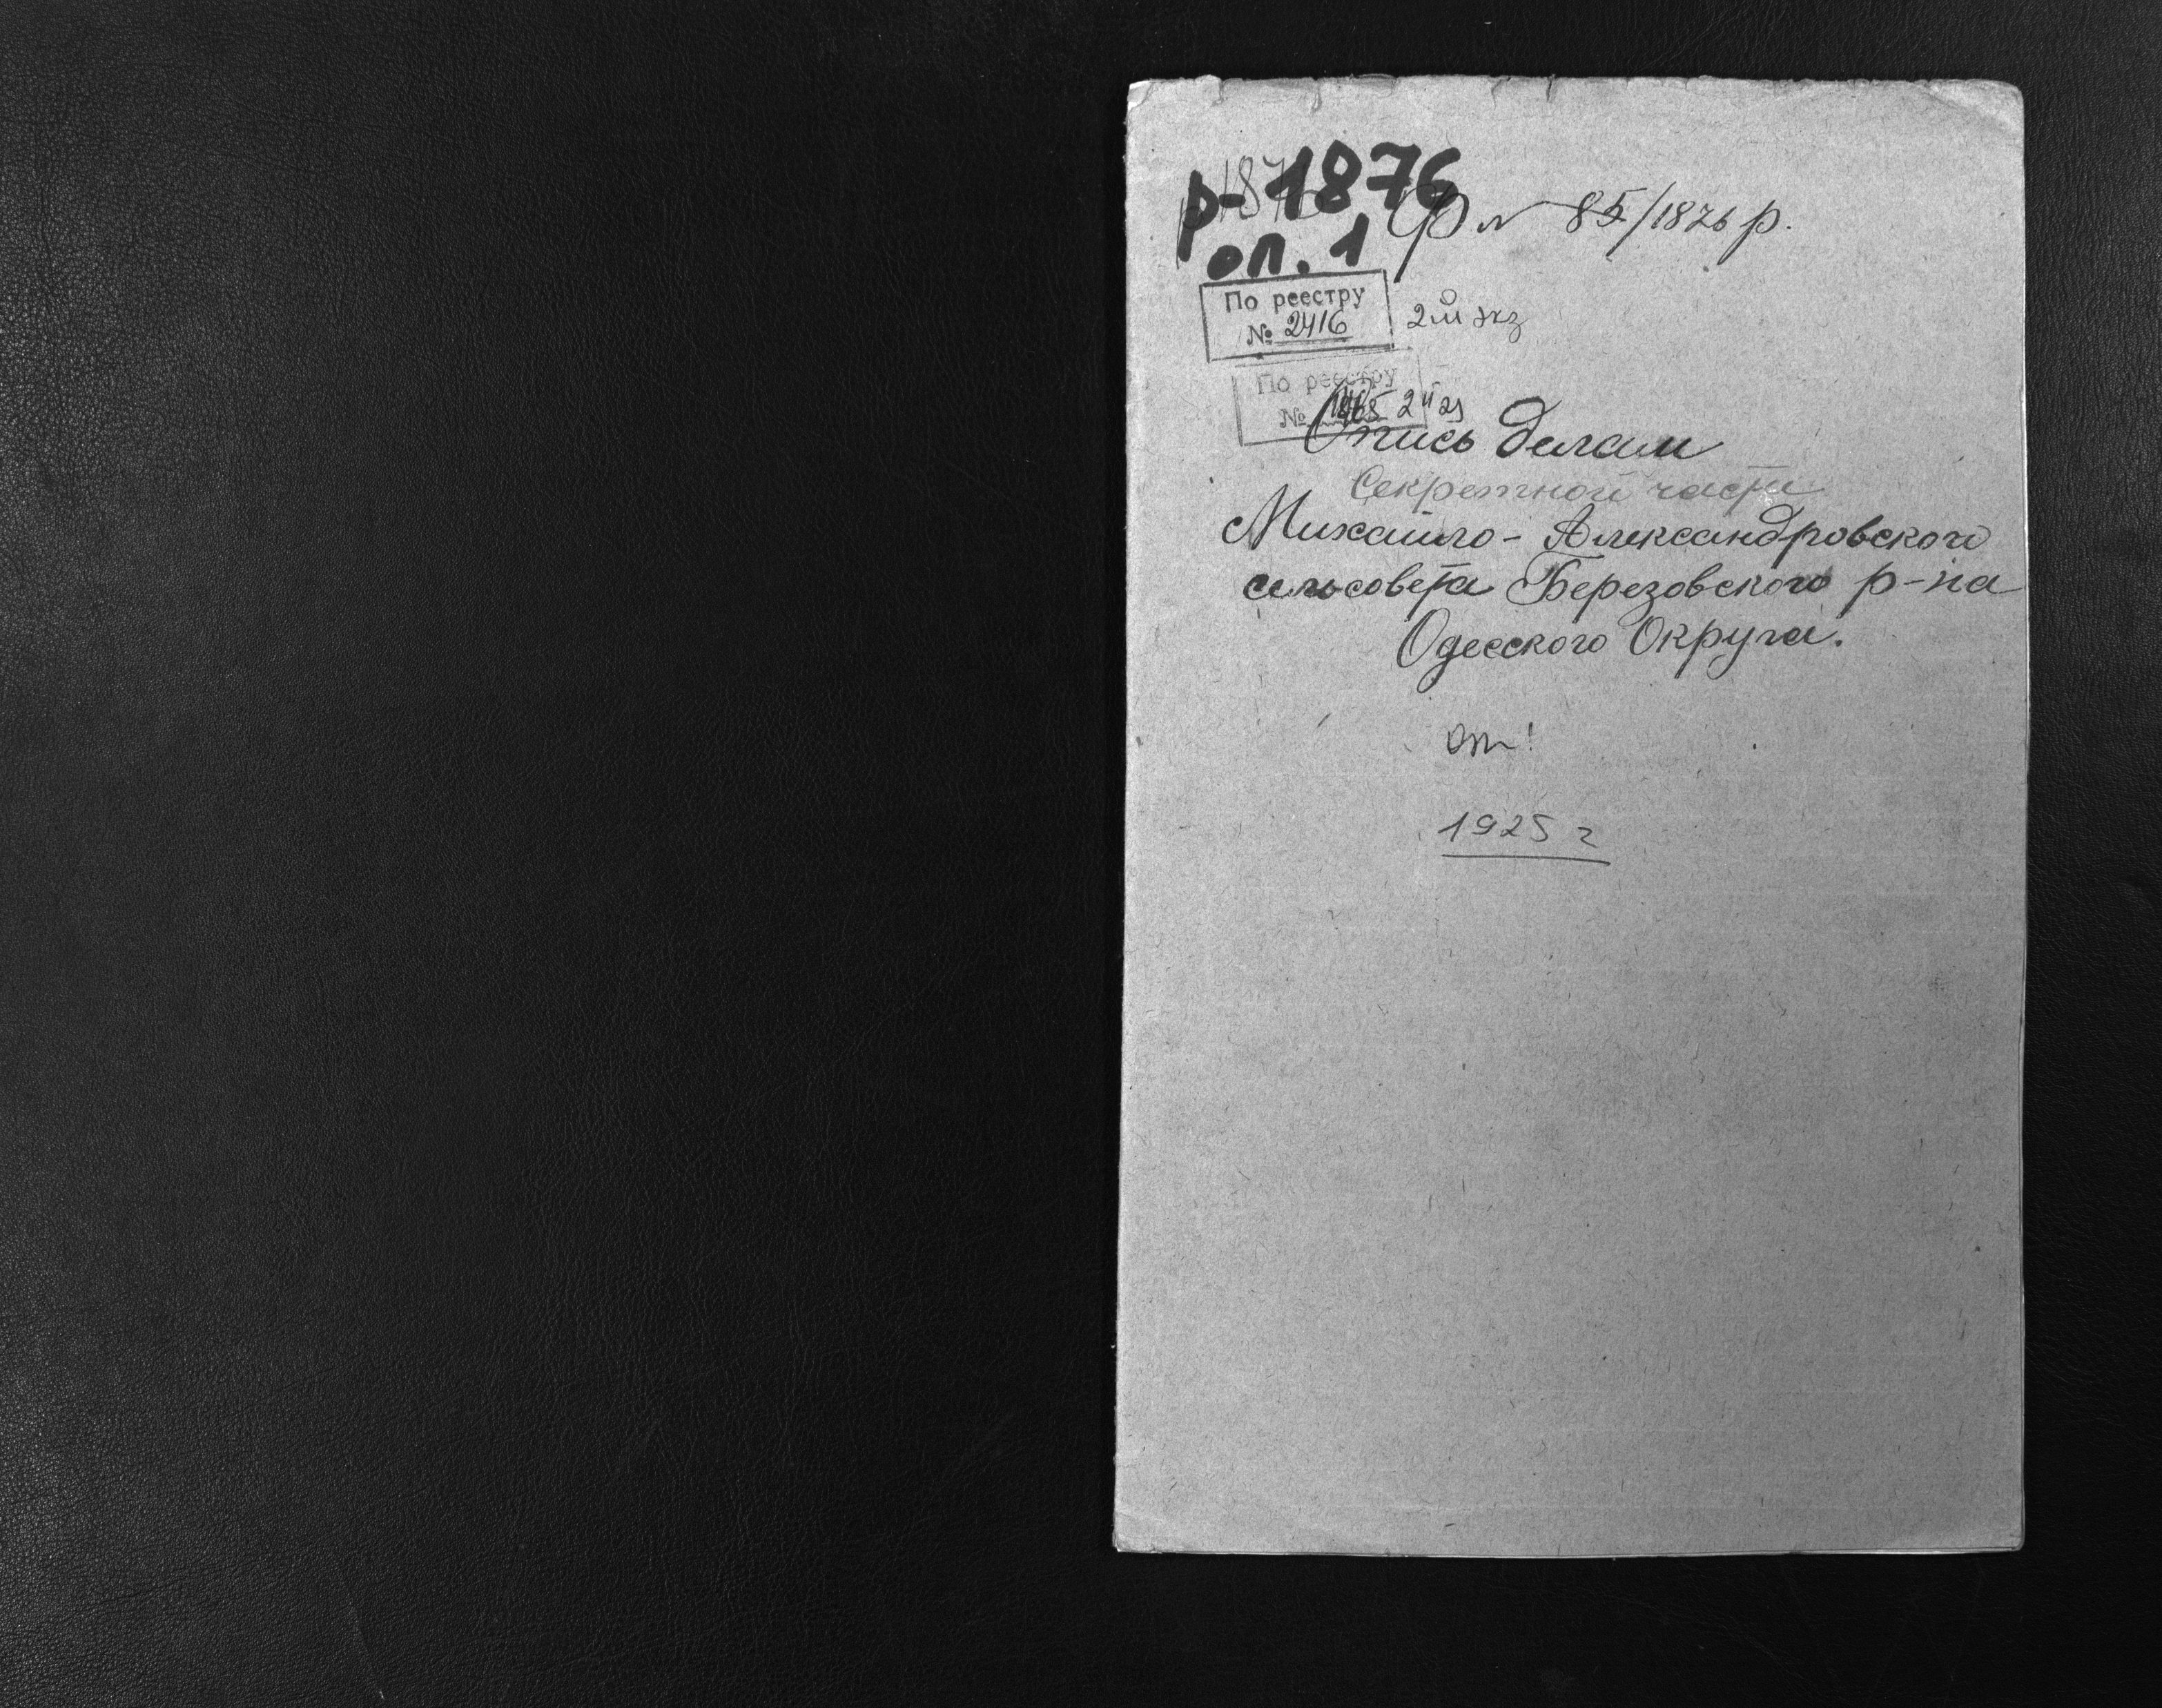 р-1876
оп. 1
Ф № 85/1876 р.
По реестру
№ 2416
2й экз
По реестру
№
Опись делам
Секретной части
Михайло-Александровского
сельсовета Березовского р-на
Одесского Округа.
оп 1
1925 г